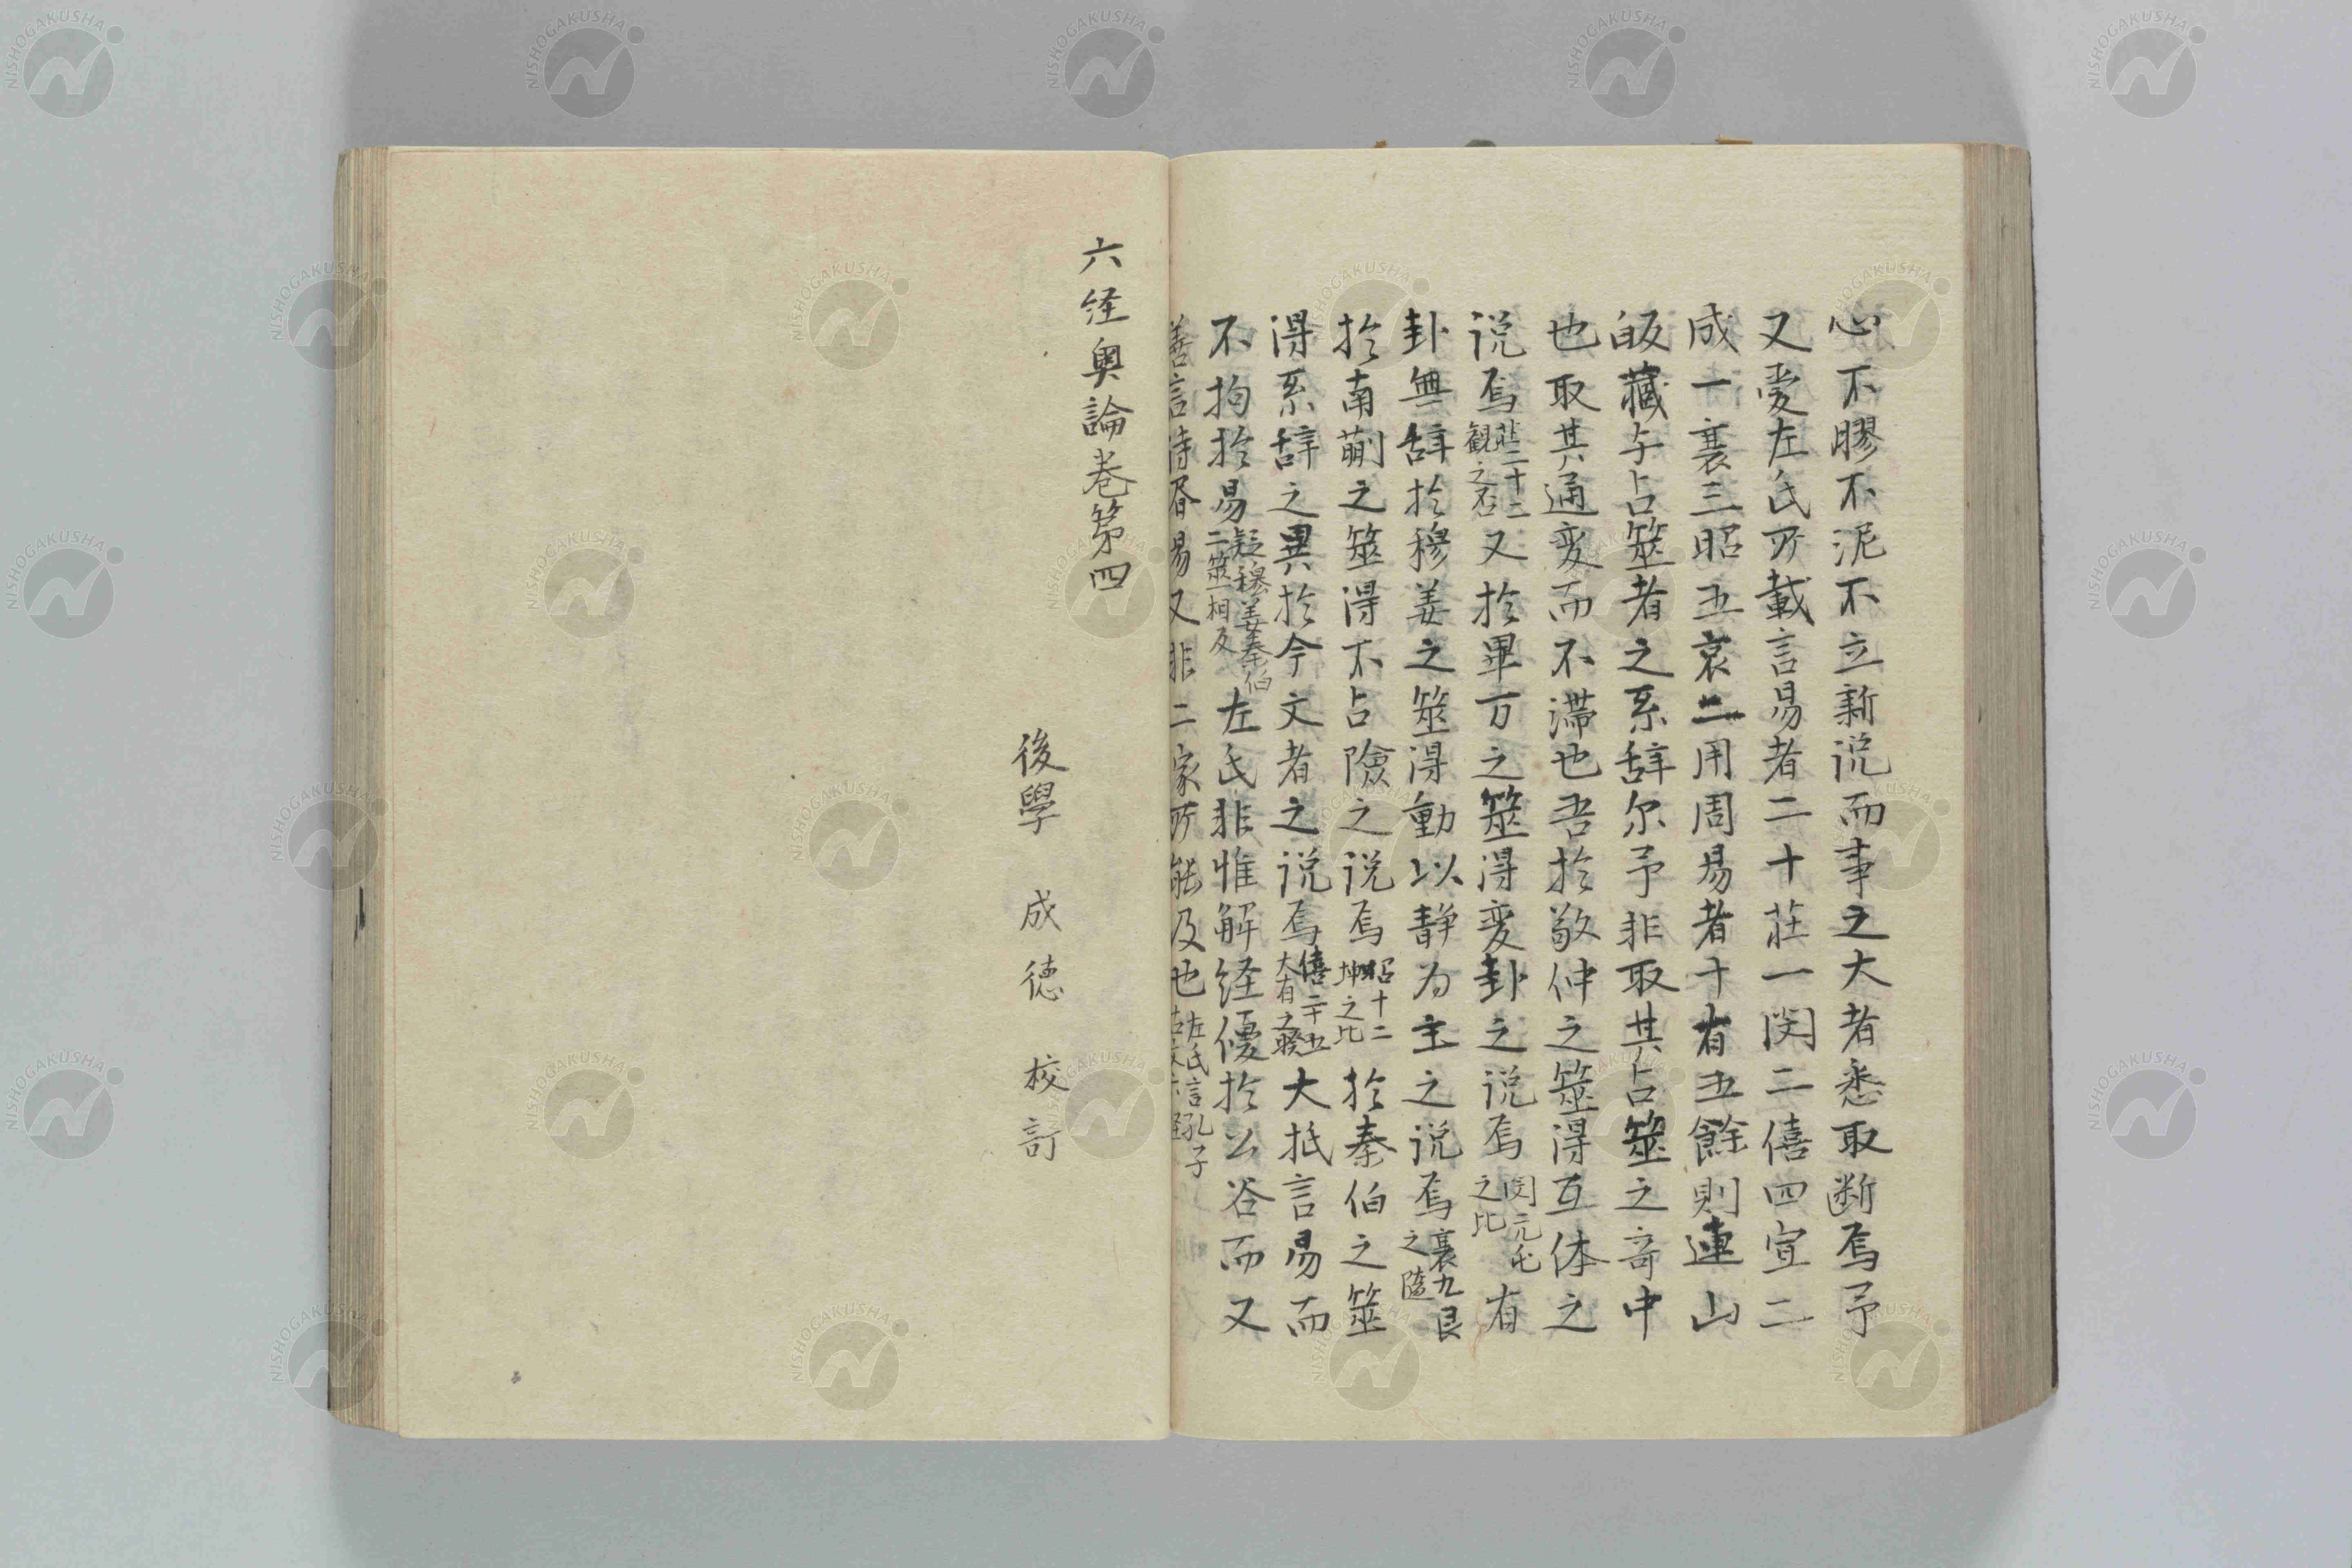 心不膠不泥不立新说而事之大者悉取断焉予
又爱左氏所載言易者二十荘一閔二僖四宣二
成一襄三昭五哀二用周易者十有五餘則連山
皈藏与占筮者之系辞尔予非取其占筮之竒中
也取其通変而不滞也吾扵敬仲之筮得互体之
说焉荘二十二観之否又扵畢万之筮得変卦之说焉閔元屯之比有
卦無辞扵穆姜之筮得動以静为主之说焉襄九艮之隨
扵南蒯之筮得不占險之说焉昭十二坤之比扵秦伯之筮
得系辞之異扵今文者之说焉僖二十五大有之睽大抵言易而
不拘扵易疑穆姜秦伯二筮相反左氏非惟解経優扵公谷而又
善言詩唇易又非二家所能及也左氏言孔子
六経奥論巻第四
後學 成德 校訂
NISHOGAKUSHA